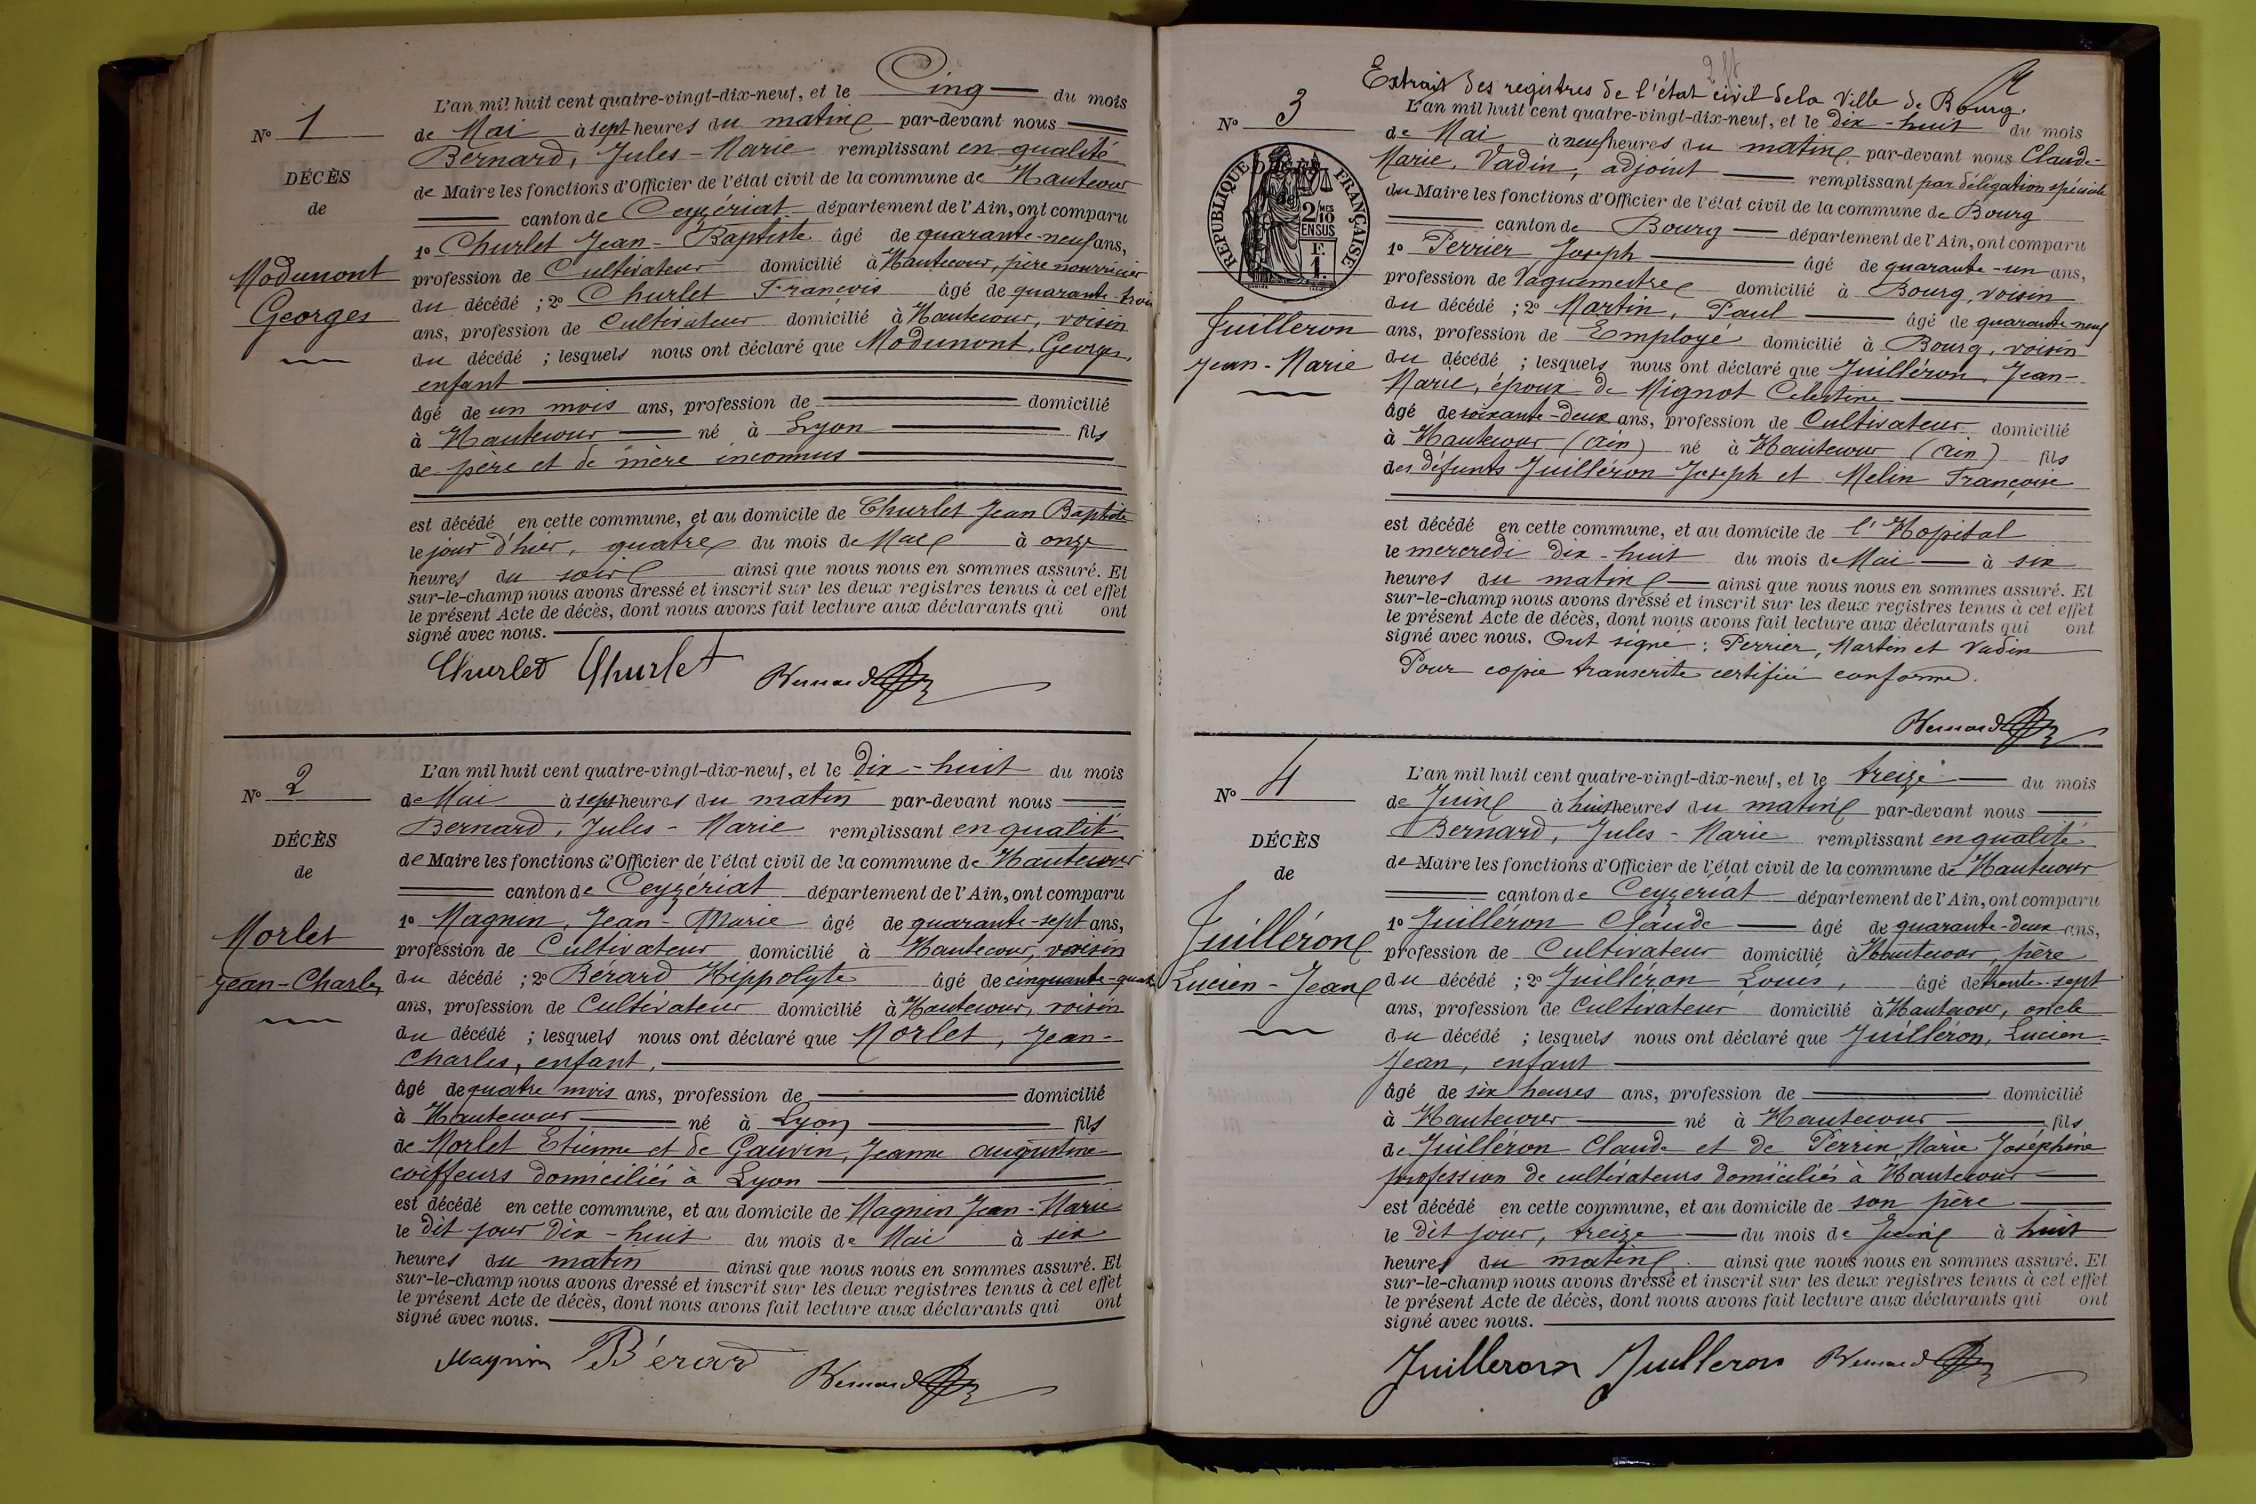 L'an mil huit cent quatre-vingt-dix-neuf, et le Cinq du mois
de Mai à sept heures du matin par-devant nous
Bernard, Jules-Marie remplissant en qualité
de Maire les fonctions d'Officier de l'état civil de la commune de Hautecour
canton de Ceyzériat département de l'Ain, ont comparu
1º Churlet Jean-Baptiste âgé de quarante-neuf ans,
profession de Cultivateur domicilié à Hautecour, père nourricier
du décédé ; 2º Churlet François âgé de quarante-trois
ans, profession de Cultivateur domicilié à Hautecour, voisin
du décédé ; lesquels nous ont déclaré que Modunont, Georges,
enfant
âgé de un mois ans, profession de domicilié
à Hautecour né à Lyon fils
de père et de mère inconnus
est décédé en cette commune, et au domicile de Churlet Jean Baptiste
le jour d'hier, quatre du mois de Mai à onze
heures du soir ainsi que nous nous en sommes assuré. Et
sur-le-champ nous avons dressé et inscrit sur les deux registres tenus à cet effet
le présent Acte de décès, dont nous avons fait lecture aux déclarants qui ont
signé avec nous.
Churlet Churlet Bernard
Nº 1
DÉCÈS
de
Modunont
Georges
Nº 2
DÉCÈS
de
Morlet
Jean-Charles
L'an mil huit cent quatre-vingt-dix-neuf, et le dix-huit du mois
de Mai à sept heures du matin par-devant nous
Bernard, Jules-Marie remplissant en qualité
de Maire les fonctions d'Officier de l'état civil de la commune de Hautecour
canton de Ceyzériat département de l'Ain, ont comparu
1º Magnin, Jean-Marie âgé de quarante-sept ans,
profession de Cultivateur domicilié à Hautecour, voisin
du décédé ; 2º Berard Hippolyte âgé de cinquante-quatre
ans, profession de Cultivateur domicilié à Hautecour, voisin
du décédé ; lesquels nous ont déclaré que Morlet, Jean-
Charles, enfant,
âgé de quatre mois ans, profession de domicilié
à Hautecour né à Lyon fils
de Morlet Etienne et de Gauvin, Jeanne Augustine
coiffeurs domiciliés à Lyon
est décédé en cette commune, et au domicile de Magnin Jean-Marie
le dit jour dix-huit du mois de Mai à six
heures du matin ainsi que nous nous en sommes assuré. Et
sur-le-champ nous avons dressé et inscrit sur les deux registres tenus à cet effet
le présent Acte de décès, dont nous avons fait lecture aux déclarants qui ont
signé avec nous.
Magnin Bérard Bernard
Extrait des registres de l'état civil de la Ville de Bourg.
Nº 3
DÉCÈS
RÉPUBLIQUE FRANÇAISE
2/10MES
EN SUS
F.
1.
Juilleron
Jean-Marie
L'an mil huit cent quatre-vingt-dix-neuf, et le dix-huit du mois
de Mai à neuf heures du matin par-devant nous Claude-
Marie, Vadin, adjoint remplissant par délégation spéciale
du Maire les fonctions d'Officier de l'état civil de la commune de Bourg
canton de Bourg département de l'Ain, ont comparu
1º Perrier Joseph âgé de quarante-un ans,
profession de Vaguemestre domicilié à Bourg, voisin
du décédé ; 2º Martin, Paul âgé de quarante-neuf
ans, profession de Employé domicilié à Bourg, voisin
du décédé ; lesquels nous ont déclaré que Juilléron, Jean-
Marie, époux de Mignot Celestine
âgé de soixante-deux ans, profession de Cultivateur domicilié
à Hautecour (Ain) né à Hautecour (Ain) fils
des défunts Juilléron Joseph et Melin Françoise
est décédé en cette commune, et au domicile de l'Hopital
le mercredi dix-huit du mois de Mai à six
heures du matin ainsi que nous nous en sommes assuré. Et
sur-le-champ nous avons dressé et inscrit sur les deux registres tenus à cet effet
le présent Acte de décès, dont nous avons fait lecture aux déclarants qui ont
signé avec nous. Ont signé : Perrier, Martin et Vadin
Pour copie transcrite certifiée conforme.
Bernard
Nº 4
DÉCÈS
de
Juilléron
Lucien-Jean
L'an mil huit cent quatre-vingt-dix-neuf, et le treize du mois
de Juin à huit heures du matin par-devant nous
Bernard, Jules-Marie remplissant en qualité
de Maire les fonctions d'Officier de l'état civil de la commune de Hautecour
canton de Ceyzeriat département de l'Ain, ont comparu
1º Juilléron Claude âgé de quarante-deux ans,
profession de Cultivateur domicilié à Hautecour, père
du décédé ; 2º Juilléron Louis, âgé de trente-sept
ans, profession de Cultivateur domicilié à Hautecour, oncle
du décédé ; lesquels nous ont déclaré que Juilléron, Lucien-
Jean, enfant
âgé de six heures ans, profession de domicilié
à Hautecour né à Hautecour fils
de Juilléron Claude et de Perrin, Marie Joséphine
profession de cultivateurs domiciliés à Hautecour
est décédé en cette commune, et au domicile de son père
le dit jour, treize du mois de Juin à huit
heures du matin ainsi que nous nous en sommes assuré. Et
sur-le-champ nous avons dressé et inscrit sur les deux registres tenus à cet effet
le présent Acte de décès, dont nous avons fait lecture aux déclarants qui ont
signé avec nous.
Juilleron Juilleron Bernard